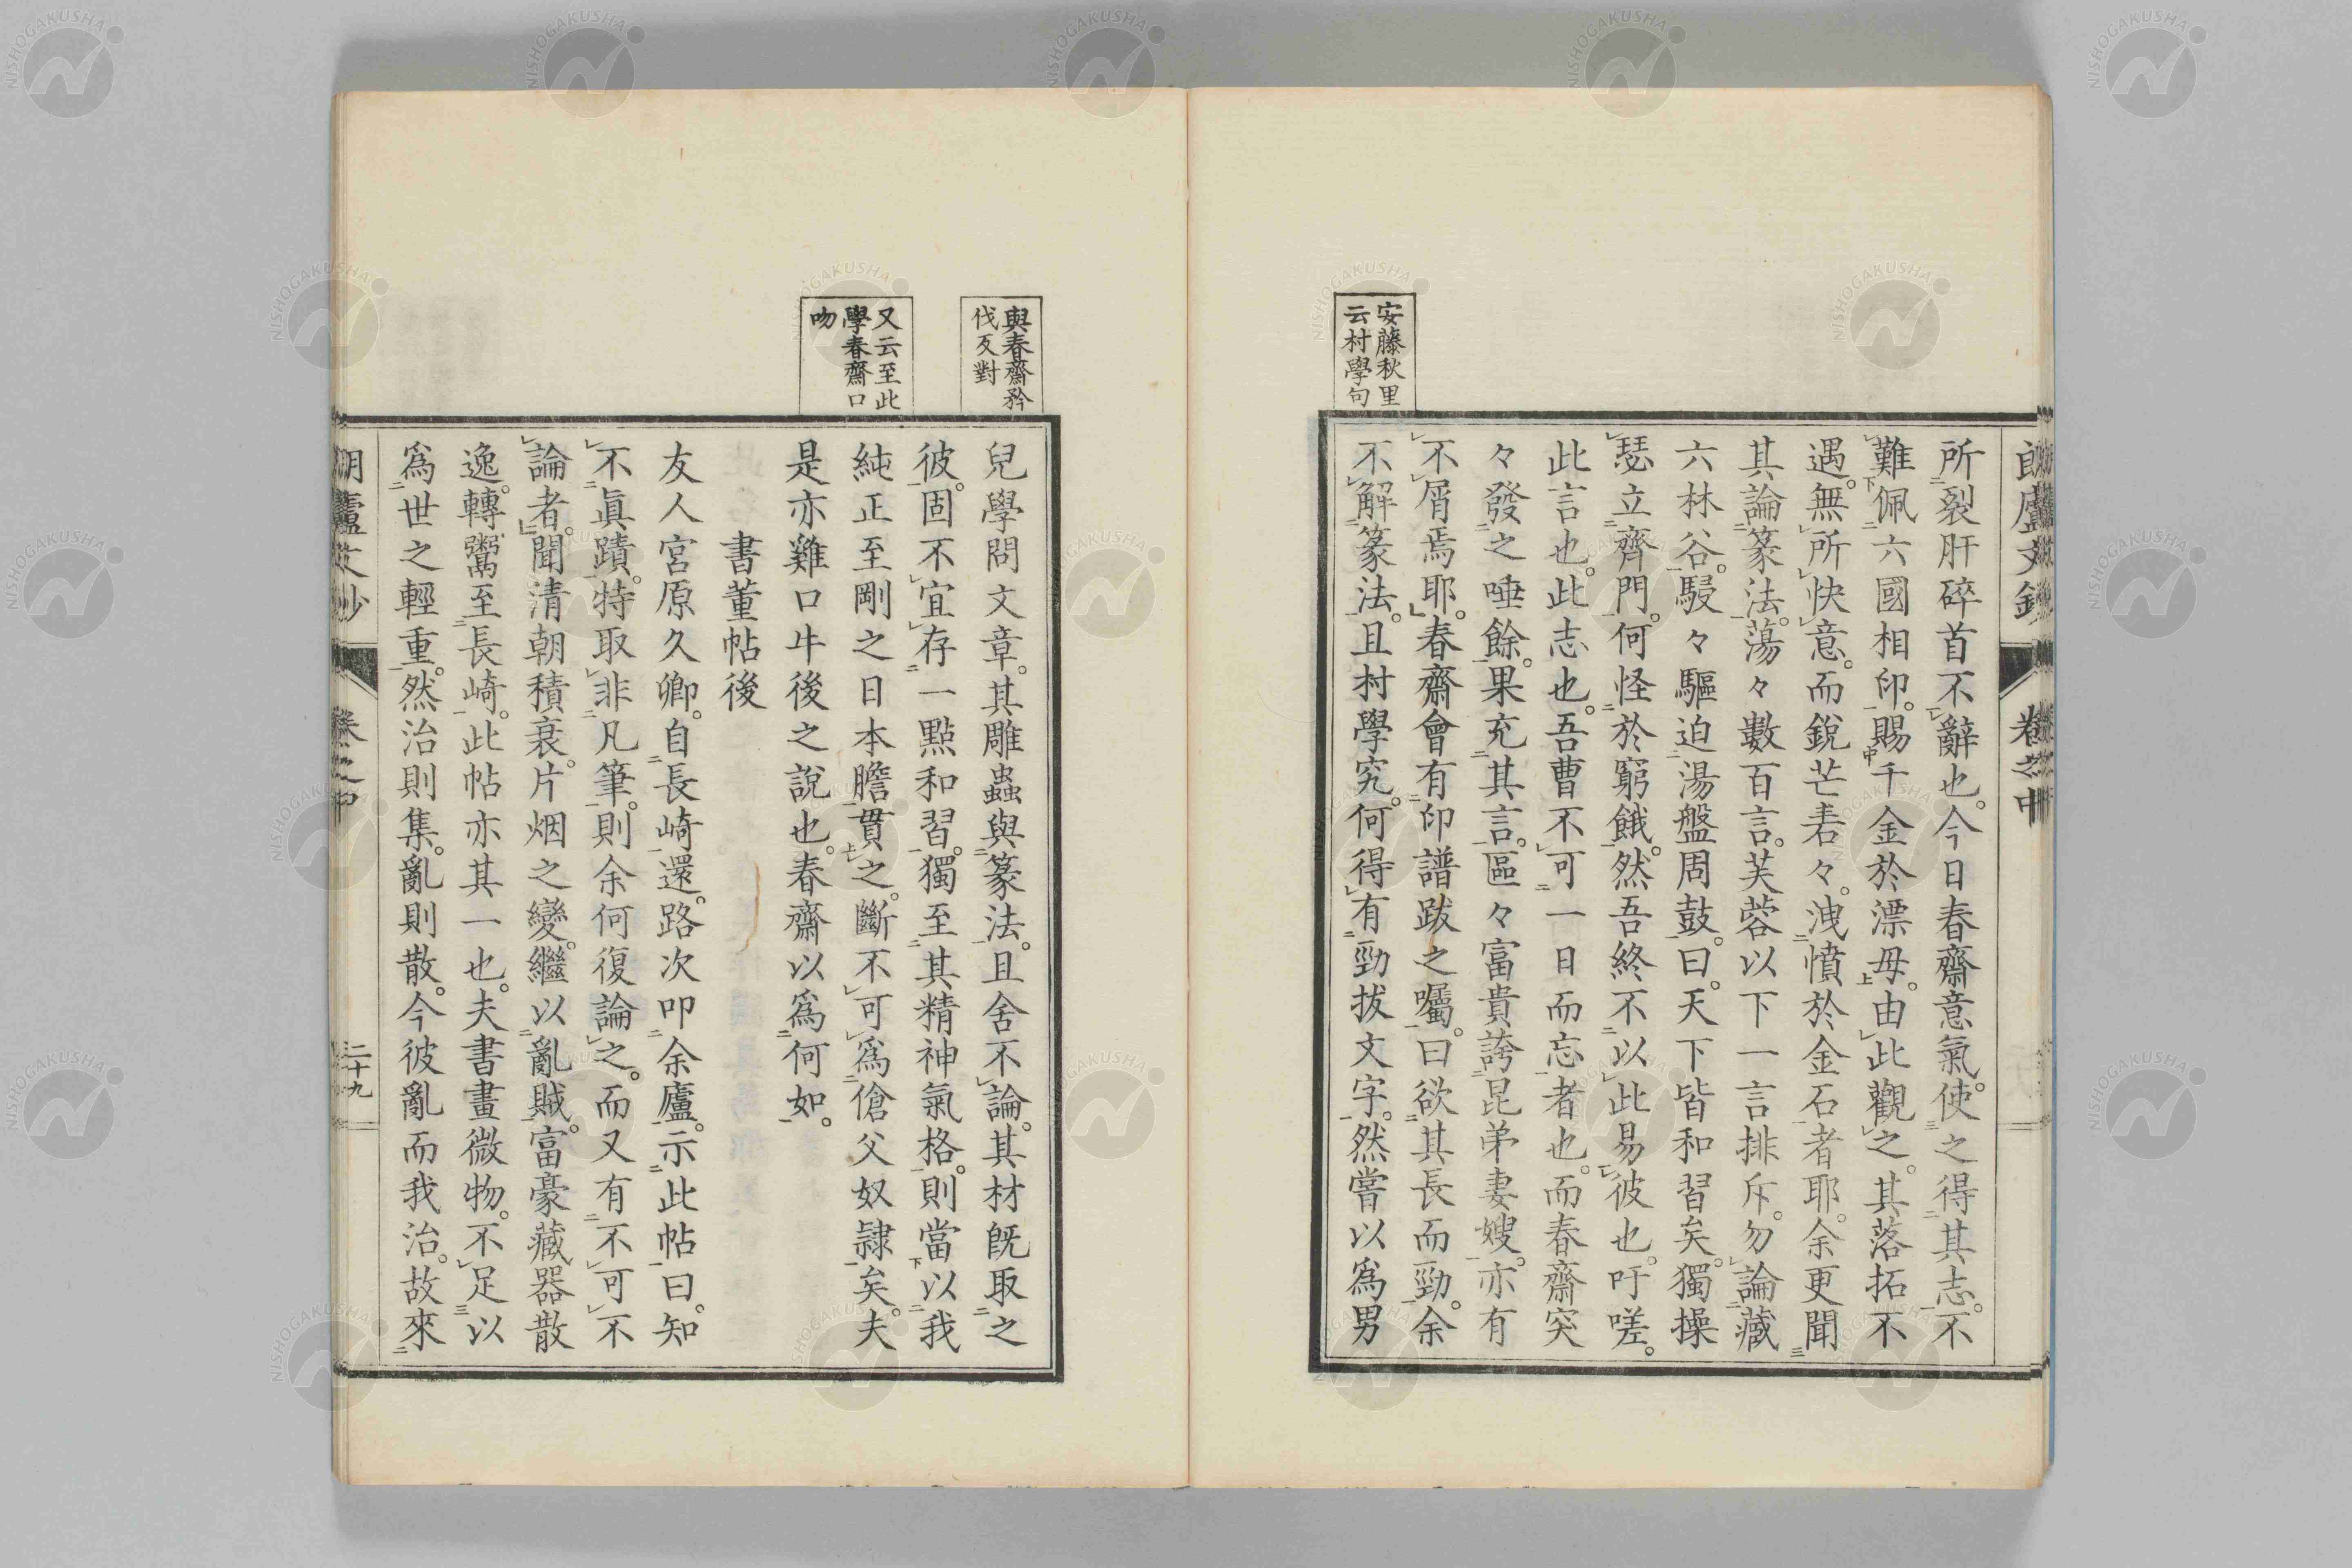 朗廬文鈔 卷之中
安藤秋里
云村學句
所裂肝碎首不辭也。今日春齋意氣。使之得其志。不
難佩六國相印。賜千金於漂母。由此觀之。其落拓不
遇。無所快意。而銳芒砉々。洩憤於金石者耶。余更聞
其論篆法。蕩々數百言。芙蓉以下一言排斥。勿論藏
六林谷。駸々驅迫湯盤周鼓。曰。天下皆和習矣。獨操
瑟立齊門。何怪於窮餓。然吾終不以此易彼也。吁嗟。
此言也。此志也。吾曹不可一日而忘者也。而春齋突
々發之唾餘。果充其言。區々富貴誇昆弟妻嫂。亦有
不屑焉耶。春齋會有印譜跋之囑。曰欲其長而勁。余
不解篆法。且村學究。何得有勁拔文字。然嘗以爲男
與春齋矜
伐反對
又云至此
學春齋口
吻
兒學問文章。其雕蟲與篆法。且舍不論。其材旣取之
彼。固不宜存一點和習。獨至其精神氣格。則當以我
純正至剛之日本膽貫之。斷不可爲傖父奴隷矣。夫
是亦雞口牛後之說也。春齋以爲何如。
書董帖後
友人宮原久卿。自長崎還。路次叩余廬。示此帖曰。知
不眞蹟。特取非凡筆。則余何復論之。而又有不可不
論者。聞清朝積衰。片烟之變。繼以亂賊。富豪藏器散
逸。轉鬻至長崎。此帖亦其一也。夫書畫微物。不足以
爲世之輕重。然治則集。亂則散。今彼亂而我治。故來
朗廬文鈔 卷之中 二十九
NISHOGAKUSHA